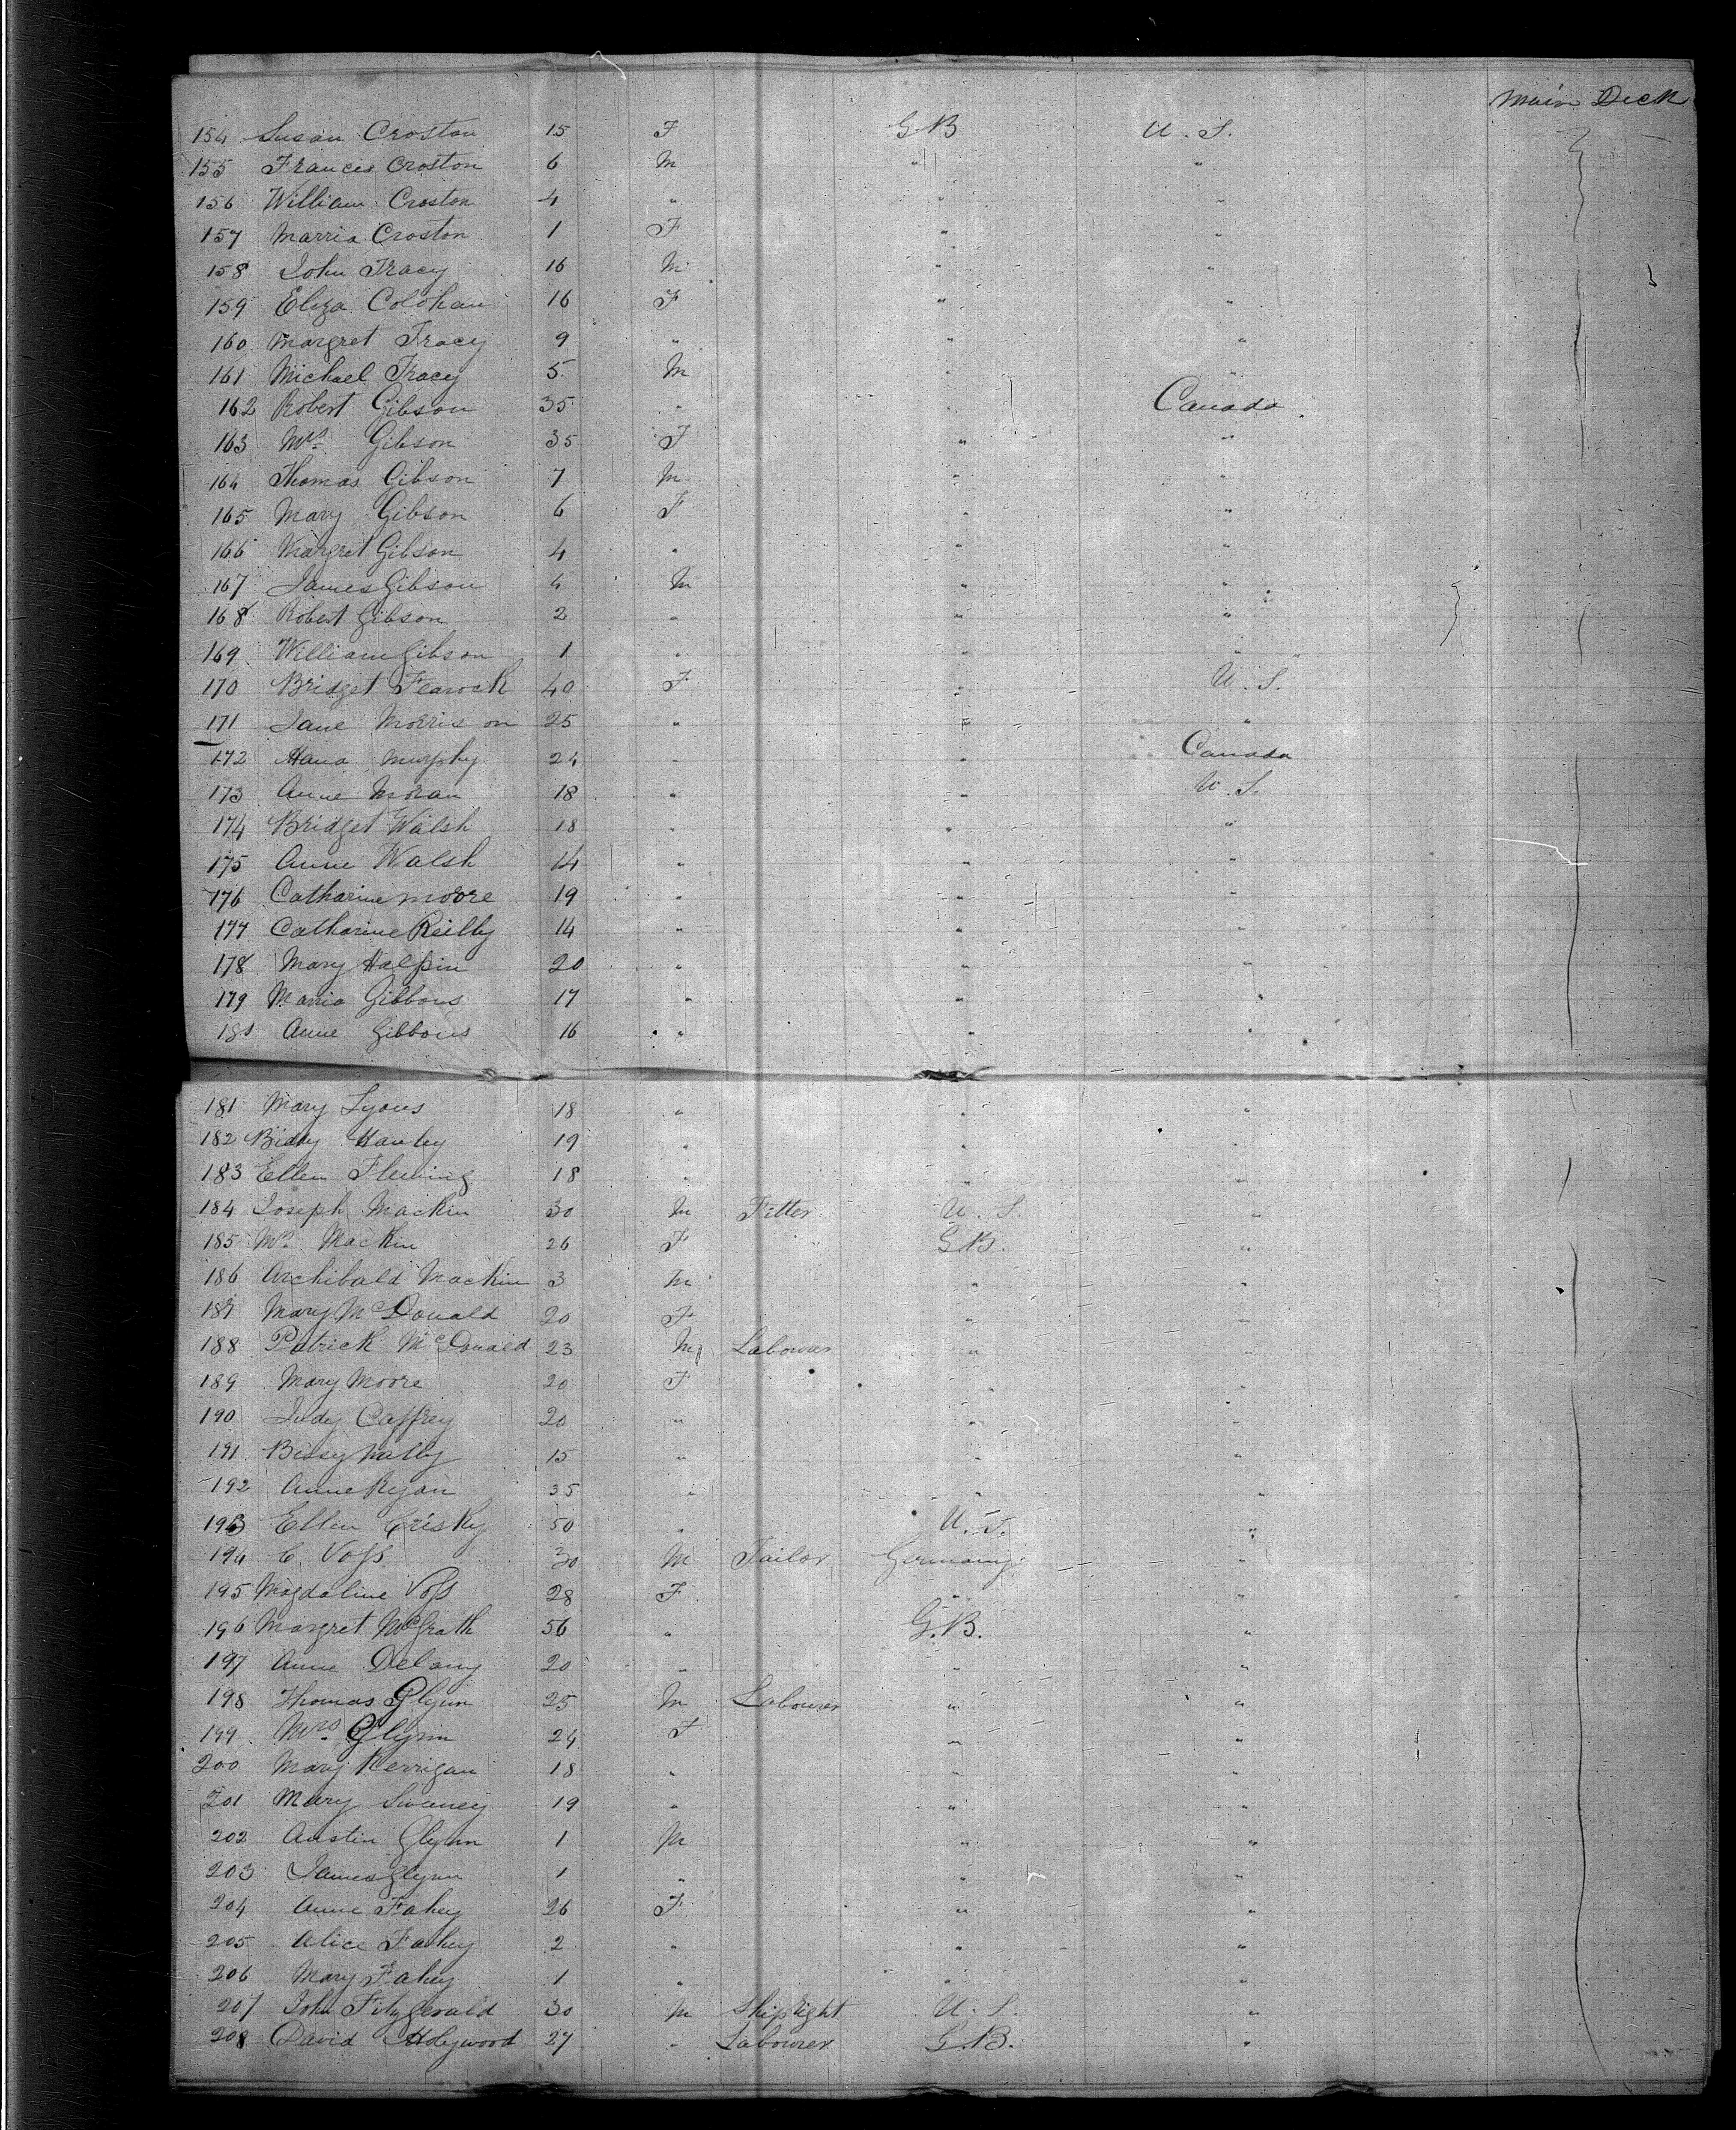 Main Deck
154 Susan Croston 15 F G.B U. S.
155 Francis Croston 6 M " "
156 William Croston 4 " " "
157 Marria Croston 1 F " "
158 John Tracy 16 M " "
159 Eliza Colohan 16 F " "
160 Margret Tracy 9 " " "
161 Michael Tracy 5 M " "
162 Robert Gibson 35 " " Canada
163 Mrs Gibson 35 F " "
164 Thomas Gibson 7 M " "
165 Mary Gibson 6 F " "
166 Margret Gibson 4 " " "
167 James Gibson 4 M " "
168 Robert Gibson 2 " " "
169 William Gibson 1 " " "
170 Bridget 40 F " U. S.
171 Jane Morrison 25 " " "
172 Hana Murphy 24 " " Canada
173 Anne Moran 18 " " U. S.
174 Bridget Walsh 18 " " "
175 Anne Walsh 14 " " "
176 Catharine Moore 19 " " "
177 Catharine Reilly 14 " " "
178 Mary Halpin 20 " " "
179 Maria Gibbons 17 " " "
180 Anne Gibbons 16 " " "
181 Mary Lyons 18 " " "
182 Biddy Hanley 19 " " "
183 Ellen Fleming 18 " " "
184 Joseph Mackin 30 M Fitter U. S. "
185 Mrs Mackin 26 F G.B. "
186 Archibald Mackin 3 M " "
187 Mary McDonald 20 F " "
188 Patrick McDonald 23 M Labourer " "
189 Mary Moore 20 F " "
190 Judy Caffrey 20 " " "
191 Bessy 15 " " "
192 Anne Ryan 35 " " "
193 Ellen 50 " U. S. "
194 C Voss 30 M Tailor Germany "
195 Magdaline Voss 28 F " "
196 Margret McGrath 56 " G.B. "
197 Anne Delany 20 " " "
198 Thomas Glynn 25 M Labourer " "
199 Mrs Glynn 24 F " "
200 Mary Kerrigan 18 " " "
201 Mary Sweeney 19 " " "
202 Austin Glynn 1 M " "
203 James Glynn 1 " " "
204 Anne Fahey 26 F " "
205 Alice Fahey 2 " " "
206 Mary Fahey 1 " " "
207 John Fitzgerald 30 M Shipright U. S. "
208 David Holywood 27 " Labourer G.B. "